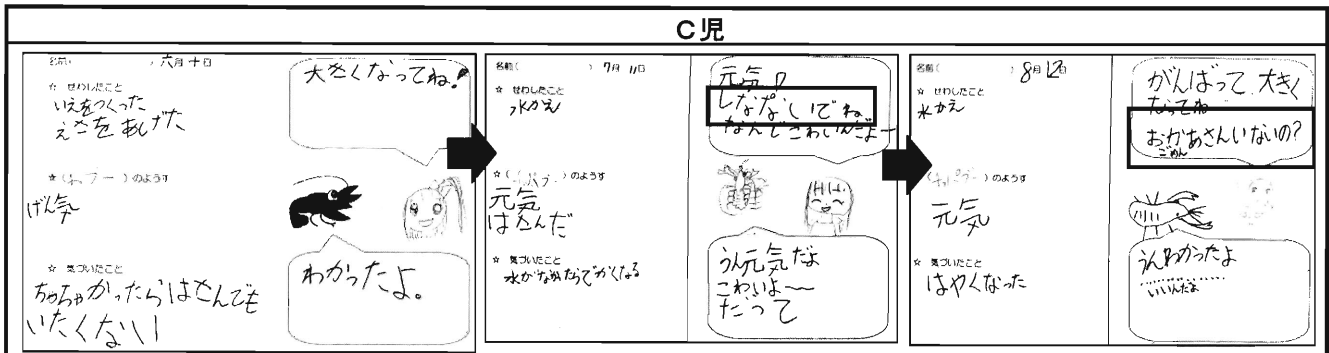 C児
名前( ) 六月十日
☆ せわしたこと
いえをつくった
えさをあげた
のようす
げん気
☆ 気づいたこと
ちっちゃかったらはさんでも
いたくない
大きくなってね!
わかったよ。
名前( ) 7月11日
☆ せわしたこと
水かえ
のようす
元気
はさんだ
☆ 気づいたこと
元気?
しなないでね
なんでこわいんだよー
うん元気だよ
こわいよ〜
だって
名前( ) 8月12日
☆ せわしたこと
水かえ
のようす
元気
☆ 気づいたこと
はやくなった
がんばって大きく
なってね
おかあさんいないの?
ごめん
うんわかったよ
いいんだよ